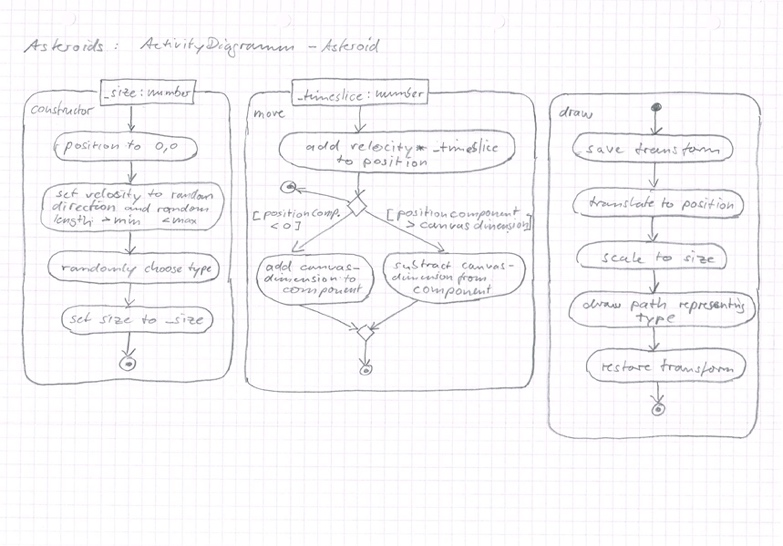 Asteroids: ActivityDiagramm - Asteroid
_size: number
constructor
position to 0,0
set velosity to random
direction and random
length > min < max
randomly choose type
set size to _size
_timeslice: number
move
add velocity * _timeslice
to position
[positioncomp.
< 0]
[positioncomponent
> canvasdimension]
add canvas-
dimension to
component
subtract canvas-
dimension from
component
draw
save transform
translate to position
scale to size
draw path representing
type
restore transform